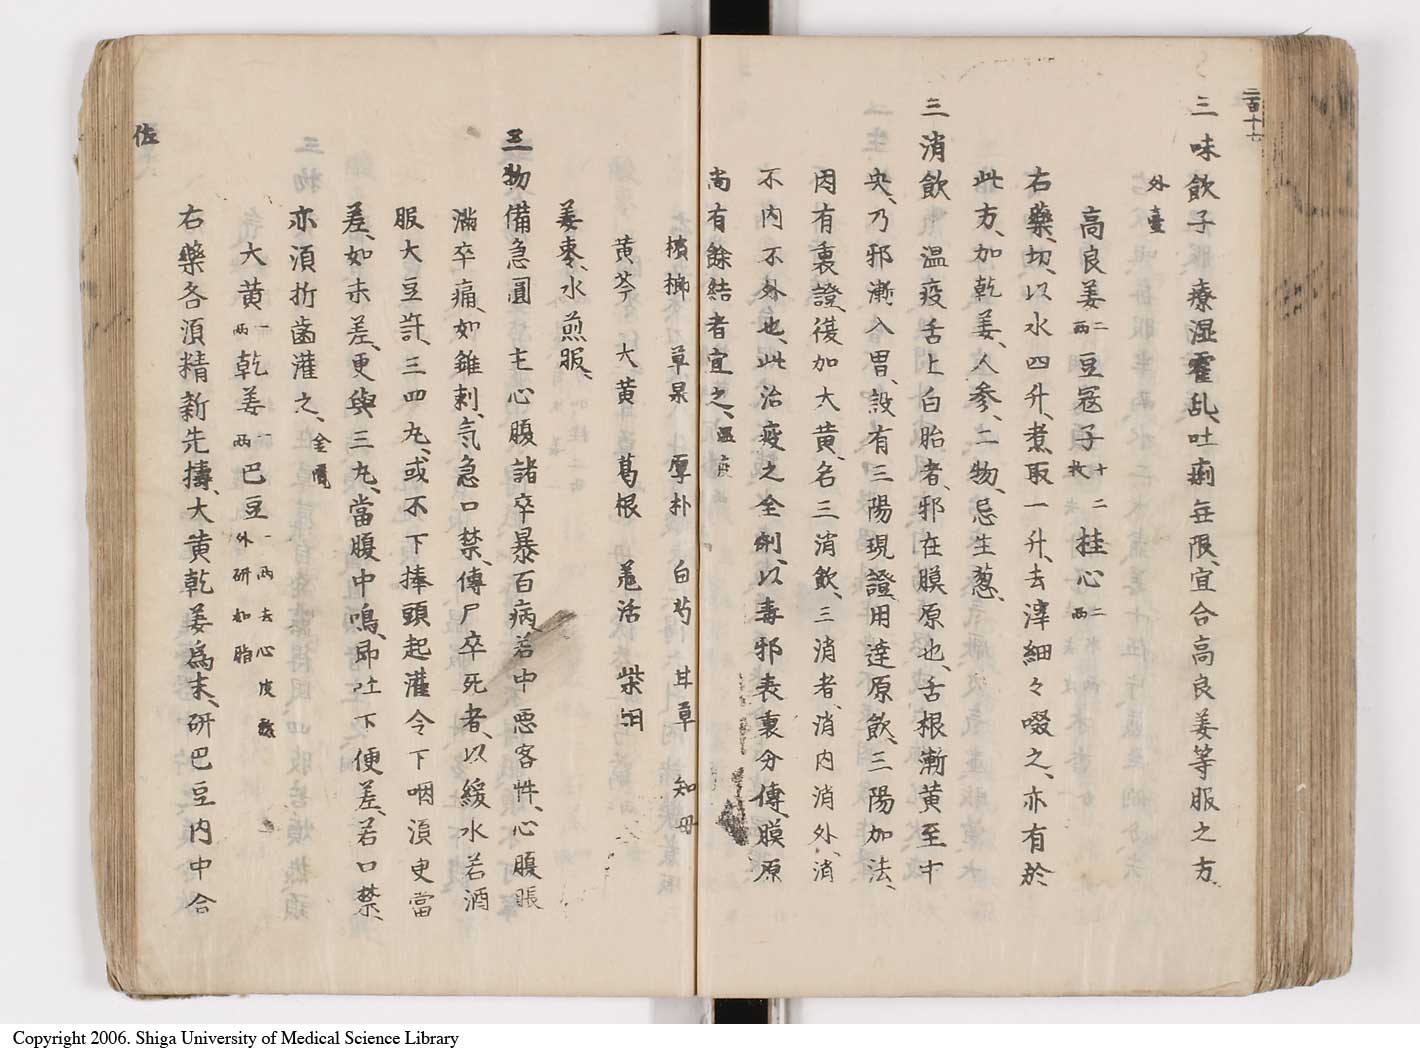 二百十七
三味飲子服 療湿霍乱、吐痢無限、宜合高良姜等服之方、
外臺
高良姜二兩 豆冦子十二枚 桂心二兩
右藥、切、以水四升、煮取一升、去滓細々啜之、亦有於
此方、加乾姜、人参、二物、忌生葱、
三消飲 温疫舌上白胎者、邪在膜原也、舌根漸黄至中
央、乃邪漸入胃、設有三陽現證、用達原飲、三陽加法、
因有裏證、復加大黄、名三消飲、三消者、消内消外、消
不内不外也、此治疫之全劑、以毒邪表裏分傳、膜原
尚有餘結者宜之、温疫
檳榔 草杲 厚朴 白芍 甘草 知母
黄芩 大黄 葛根 羗活 柴胡
姜枣、水煎服、
三物備急圓 主心腹諸卒暴百病、若中悪客忤、心腹脹
滿卒痛、如錐刺、気急口禁、傳尸卒死者、以緩水若酒
服大豆許、三四丸、或不下捧頭起灌令下咽湏臾當
差、如未差、更與三丸、當腹中鳴、即吐下便差、若口禁、
亦湏折齒灌之、金匱
大黄一兩 乾姜一兩 巴豆一兩去心皮熬外研如脂
右藥各湏精新先擣、大黄乾姜爲末、研巴豆内中合
佐